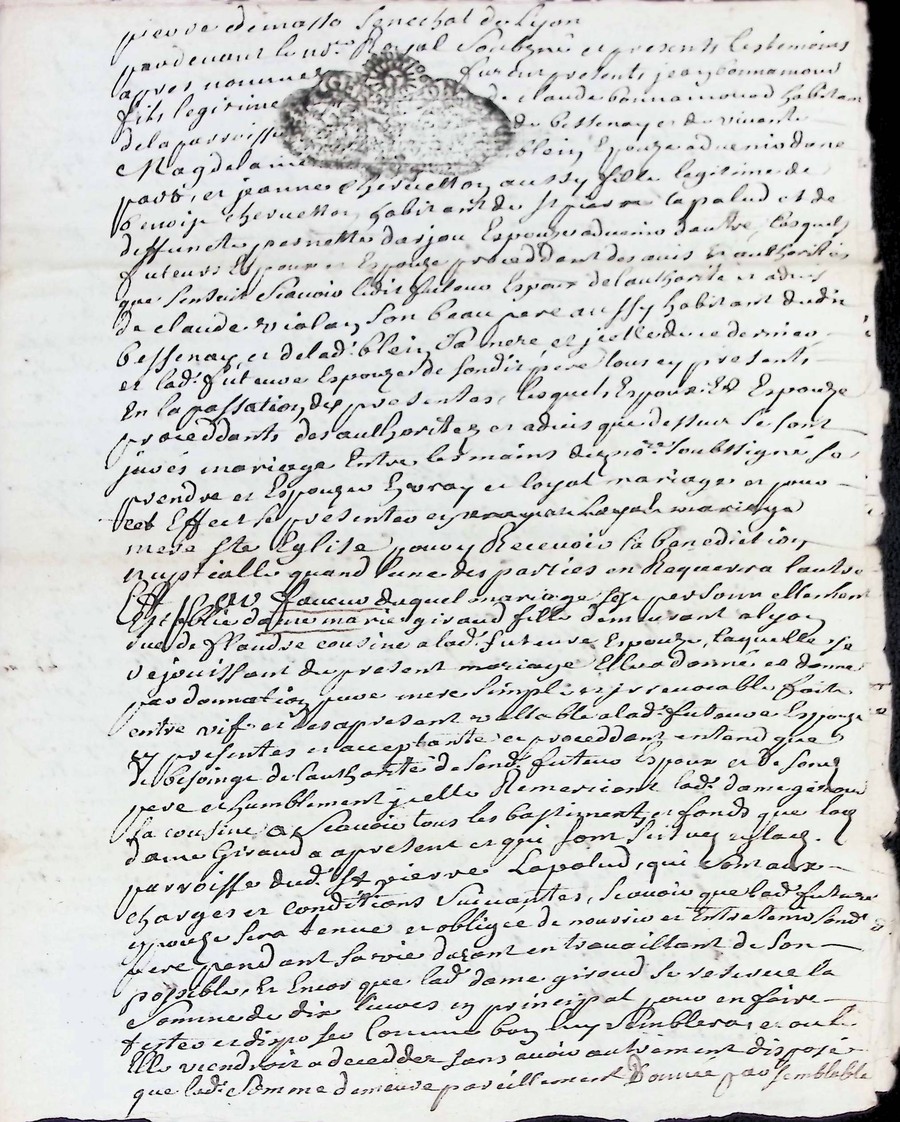 pierre demasso Senechal de Lyon
pardevant le no.re Royal Soubzné et presents les temoins
apres nommez furent presents jean bonnamour
fils legitime de claude bonnamour habitant
de la parroisse de bessenay et de vivante
Magdelaine blein Espouze advenir dune
part, et jeanne chervetton aussy fille legitime de
benoist chervetton habitant de St pierre lapalud et de
deffuncte pernette darjou Espouze advenir dautre, lesquels
futeurs Espoux et Espouze proceddant des avis et authorités
que sensuit Scavoir ledit futeur Espoux de lauthorité et advis
de claude violay Son beau pere aussy habitant dudit
bessenay et de lad.e blein Sa mere et jcelle du ce dernier
et lad.e futeure Espouze de Sondit pere tous cy presents
En la passation des presentes, lesquels Espoux Et Espouze
proceddants des authoritez et advis que dessus Se sont
jurés mariage Entre les mains du no.re Soubssigné Se
prendre et Espouzer En vray et loyal mariage et pour
cet Effect Se presenter En
mere Ste Eglise pour y Recevoir la benediction
nuptialle quand lune des parties en Requerra lautre
Et En faveur duquel mariage Sest personnellement
Establie dame marie giraud fille demeurant a lyon
rue de flandre cousine a lad.e futeure Espouze, laquelle Se
rejouissant du present mariage Elle a donné et donne
par donnation pure mere Simple et jrrevocable faite
entre vifs et des apresent vallable a lad.e futeure Espouze
cy presentes et acceptante et proceddant entand que
de besoing de lauthorité de Sond.t futeur Espoux et de Sond.
pere et humblement jcelle Remerciant lad.e dame giraud
Sa cousine a Scavoir tous les bastiments et fonds que lad.
dame Giraud a apresent et qui Sont Situez
parroisse dud.t St pierre Lapalud, qui Sont aux
charges et conditions Suivantes, Scavoir que lad.e future
Epouze Sera tenue et obligée de nourrir et Entretenir Sond.t
pere pendant Sa vie durant en travaillant de Son
possible, Et Encor que lad.e dame giraud Se reserve la
Somme de dix livres en principal pour en faire
tester et disposer Comme bon luy Semblera, et ou
Elle viendroit a decedder Sans avoir autrement disposé
que lad.e Somme demeure pareillement donnée par Semblable